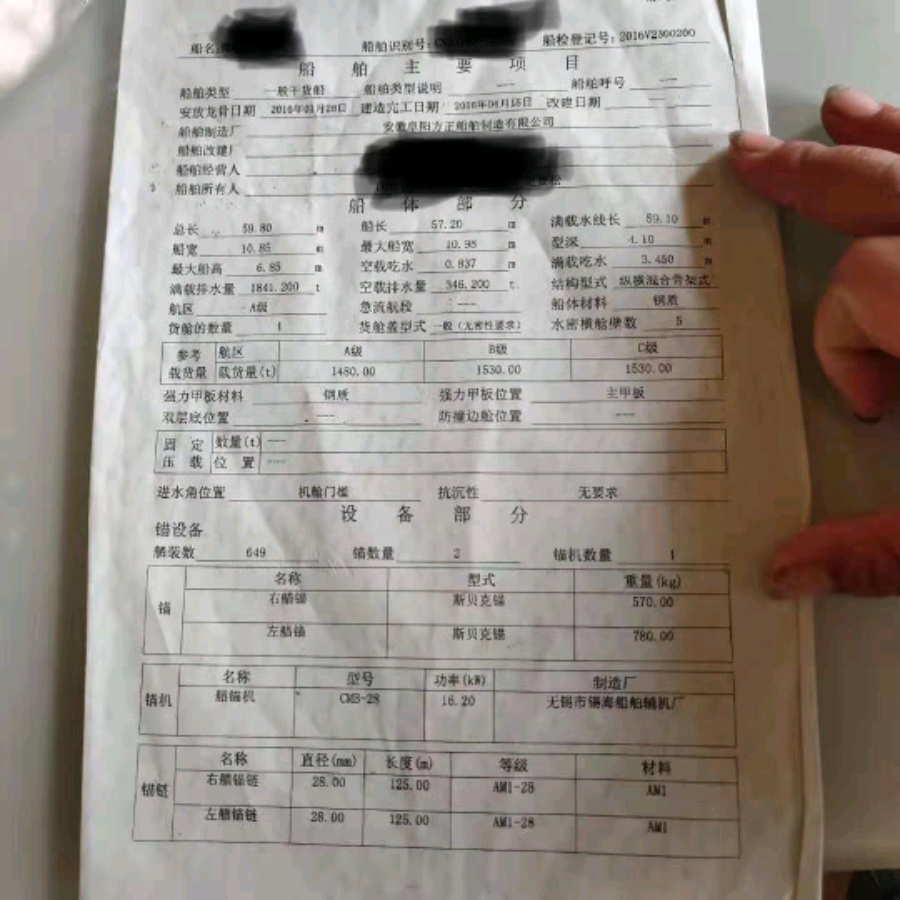 船名: 船舶识别号: 船检登记号: 2016V2300200
船 舶 主 要 项 目
船舶类型 一般干货船 船舶类型说明 --- 船舶呼号 ---
安放龙骨日期 2016年01月28日 建造完工日期 2016年04月15日 改建日期
船舶制造厂 安徽阜阳方正船舶制造有限公司
船舶改建厂
船舶经营人
船舶所有人
船 体 部 分
总长 59.80 m 船长 57.20 m 满载水线长 59.10 m
船宽 10.85 m 最大船宽 10.95 m 型深 4.10 m
最大船高 6.85 m 空载吃水 0.837 m 满载吃水 3.450 m
满载排水量 1841.200 t 空载排水量 346.200 t 结构型式 纵横混合骨架式
航区 A级 急流航段 --- 船体材料 钢质
货舱的数量 1 货舱盖型式 一般(无密性要求) 水密横舱壁数 5
参考 航区 A级 B级 C级
载货量 载货量(t) 1480.00 1530.00 1530.00
强力甲板材料 钢质 强力甲板位置 主甲板
双层底位置 --- 防撞边舱位置 ---
固 定 数量(t) ---
压 载 位 置 ---
进水角位置 机舱门槛 抗沉性 无要求
设 备 部 分
锚设备
舾装数 649 锚数量 2 锚机数量 1
名称 型式 重量(kg)
锚 右艏锚 斯贝克锚 570.00
左艏锚 斯贝克锚 780.00
名称 型号 功率(kW) 制造厂
锚机 艏锚机 CM3-28 16.20 无锡市锡海船舶辅机厂
名称 直径(mm) 长度(m) 等级 材料
锚链 右艏锚链 28.00 125.00 AM1-28 AM1
左艏锚链 28.00 125.00 AM1-28 AM1